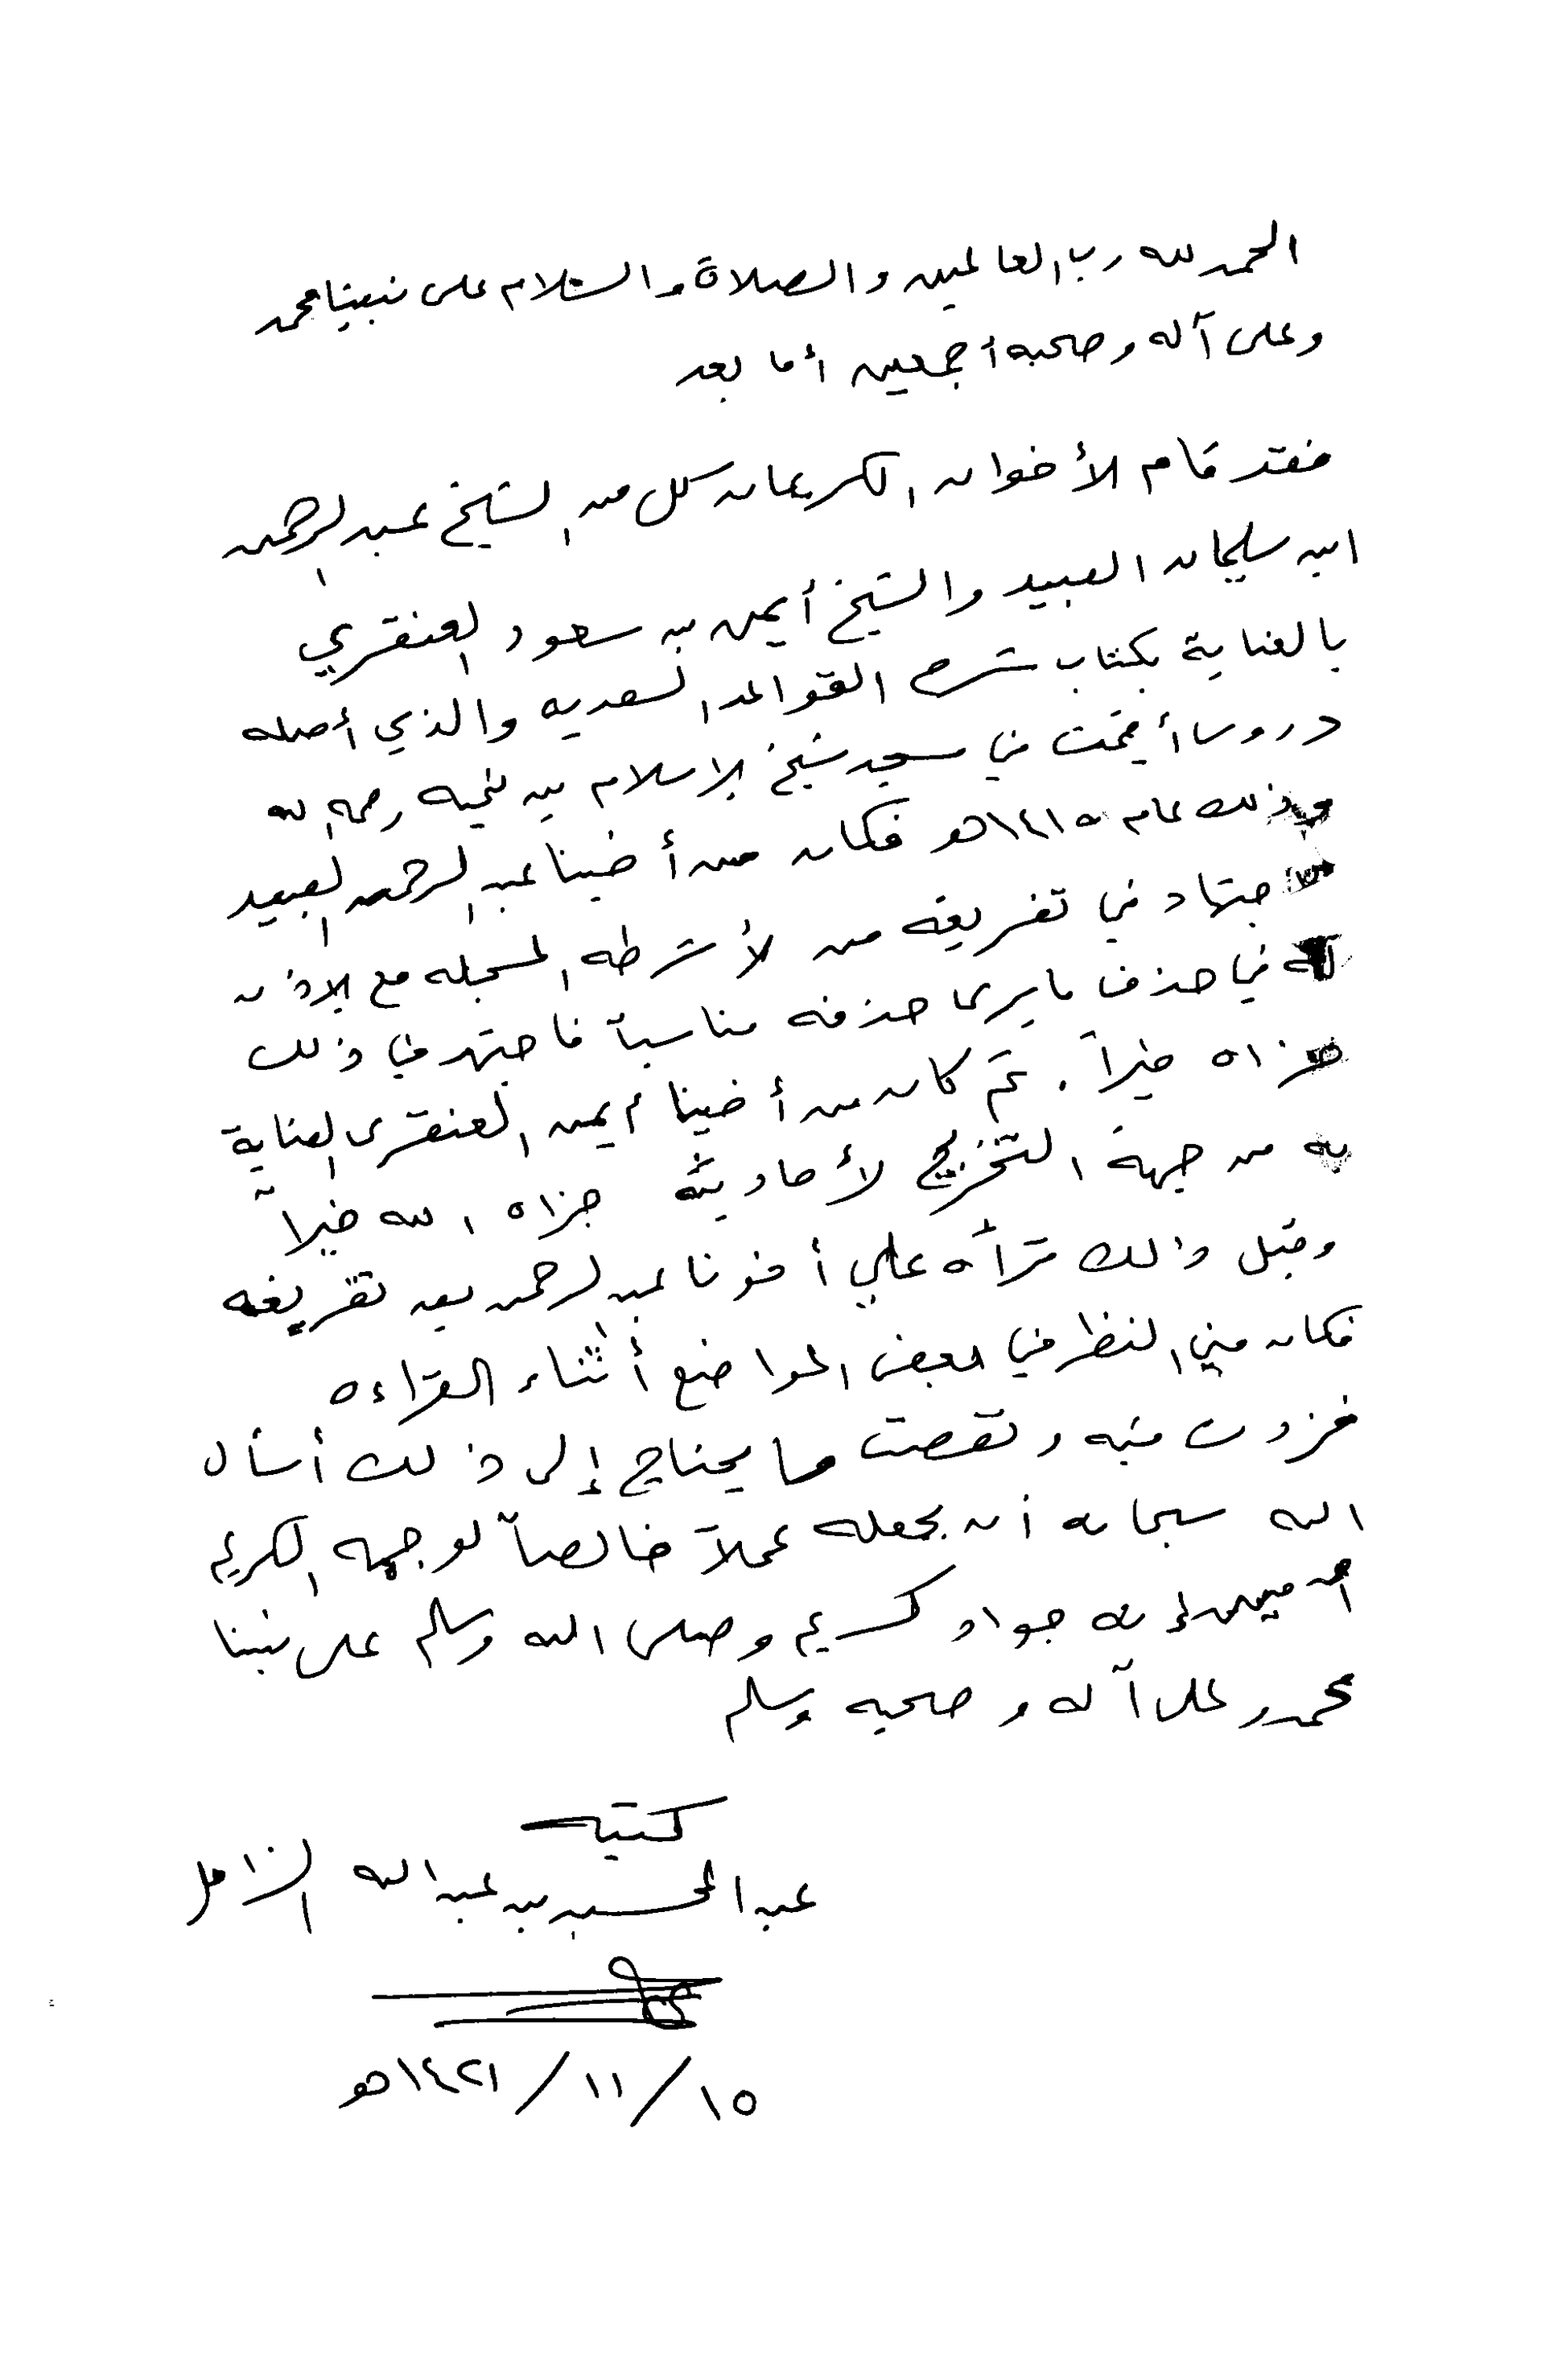 الحمد لله رب العالمين والصلاة والسلام على نبينا محمد
وعلى آله وصحبه أجمعين أما بعد
فقد قام الأخوان الكريمان كل من الشيخ عبد الرحمن
ابن سليمان العبيد والشيخ أيمن بن سعود العنقري
بالعناية بكتاب شرح القواعد السعديه والذي أصله
دروسا أقيمت في مسجد شيخ الاسلام بن تيميه رحمه الله
وذلك عام ١٤١٥هـ فكان من أخينا عبد الرحمن العبيد
الاجتهاد في تفريغه من الأشرطه المسجله مع الاذن
له في حذف ما يرى حذفه مناسباً فاجتهد في ذلك
جزاه خيراً. ثم كان من أخينا أيمن العنقرى العناية
به من جهة التخريج لأحاديثه جزاه الله خيراً
وقبل ذالك قرأه علي أخونا عبد الرحمن بعد تفريغه
فكان مني النظر في بعض المواضع أثناء القراءه
فزدت فيه ونقصت ما يحتاج إلى ذلك أسأل
الله سبحانه أن يجعله عملاً خالصاً لوجهه الكريم
آمين إنه جواد كريم وصلى الله وسلم على نبينا
محمد وعلى آله وصحبه وسلم
كتبه
عبد المحسن بن عبد الله الزامل
١٥/١١/١٤٢١هـ